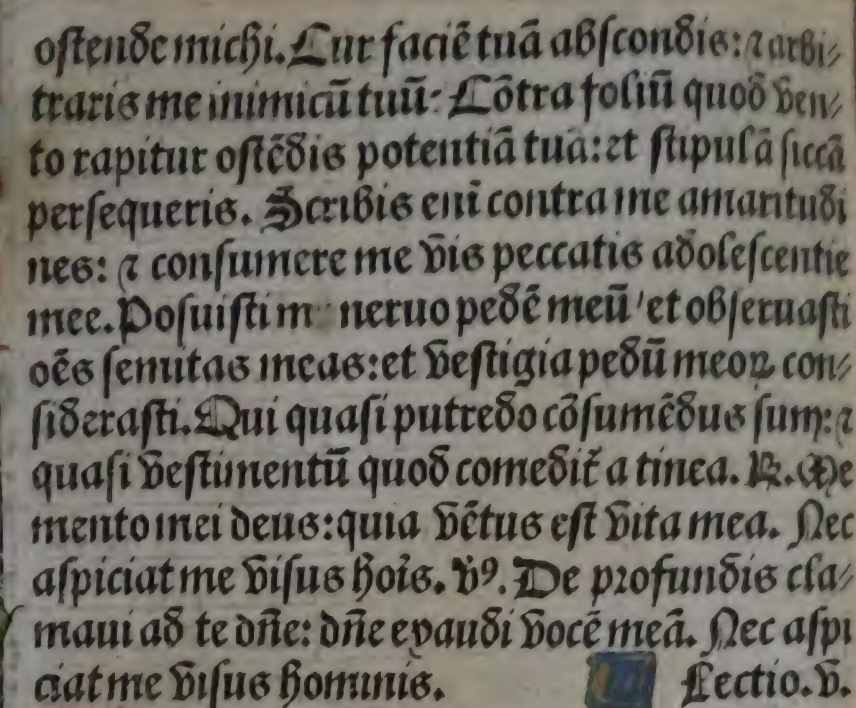 ostende michi. Cur faciē tuā abscondis: ⁊ arbi⸗
traris me inimicū tuū: Cōtra foliū quod ven⸗
to rapitur ostēdis potentiā tuā: et stipulā siccā
persequeris. Scribis eni contra me amaritudi
nes: ⁊ consumere me vis peccatis adolescentie
mee. Posuisti m neruo pedē meū / et obseruasti
oēs semitas meas: et vestigia pedū meoꝝ con⸗
siderasti. Qui quasi putredo cōsumēdus sum: ⁊
quasi vestimentū quod comedit̄ a tinea. ℞. Me
mento mei deus: quia vētus est vita mea. Nec
aspiciat me visus hoīs. vꝰ. De profundis cla⸗
maui ad te dñe: dñe exaudi vocē meā. Nec aspi
ciat me visus hominis. Lectio. v.